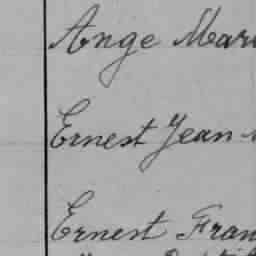 Ange Mari
Ernest Jean
Ernest Fran